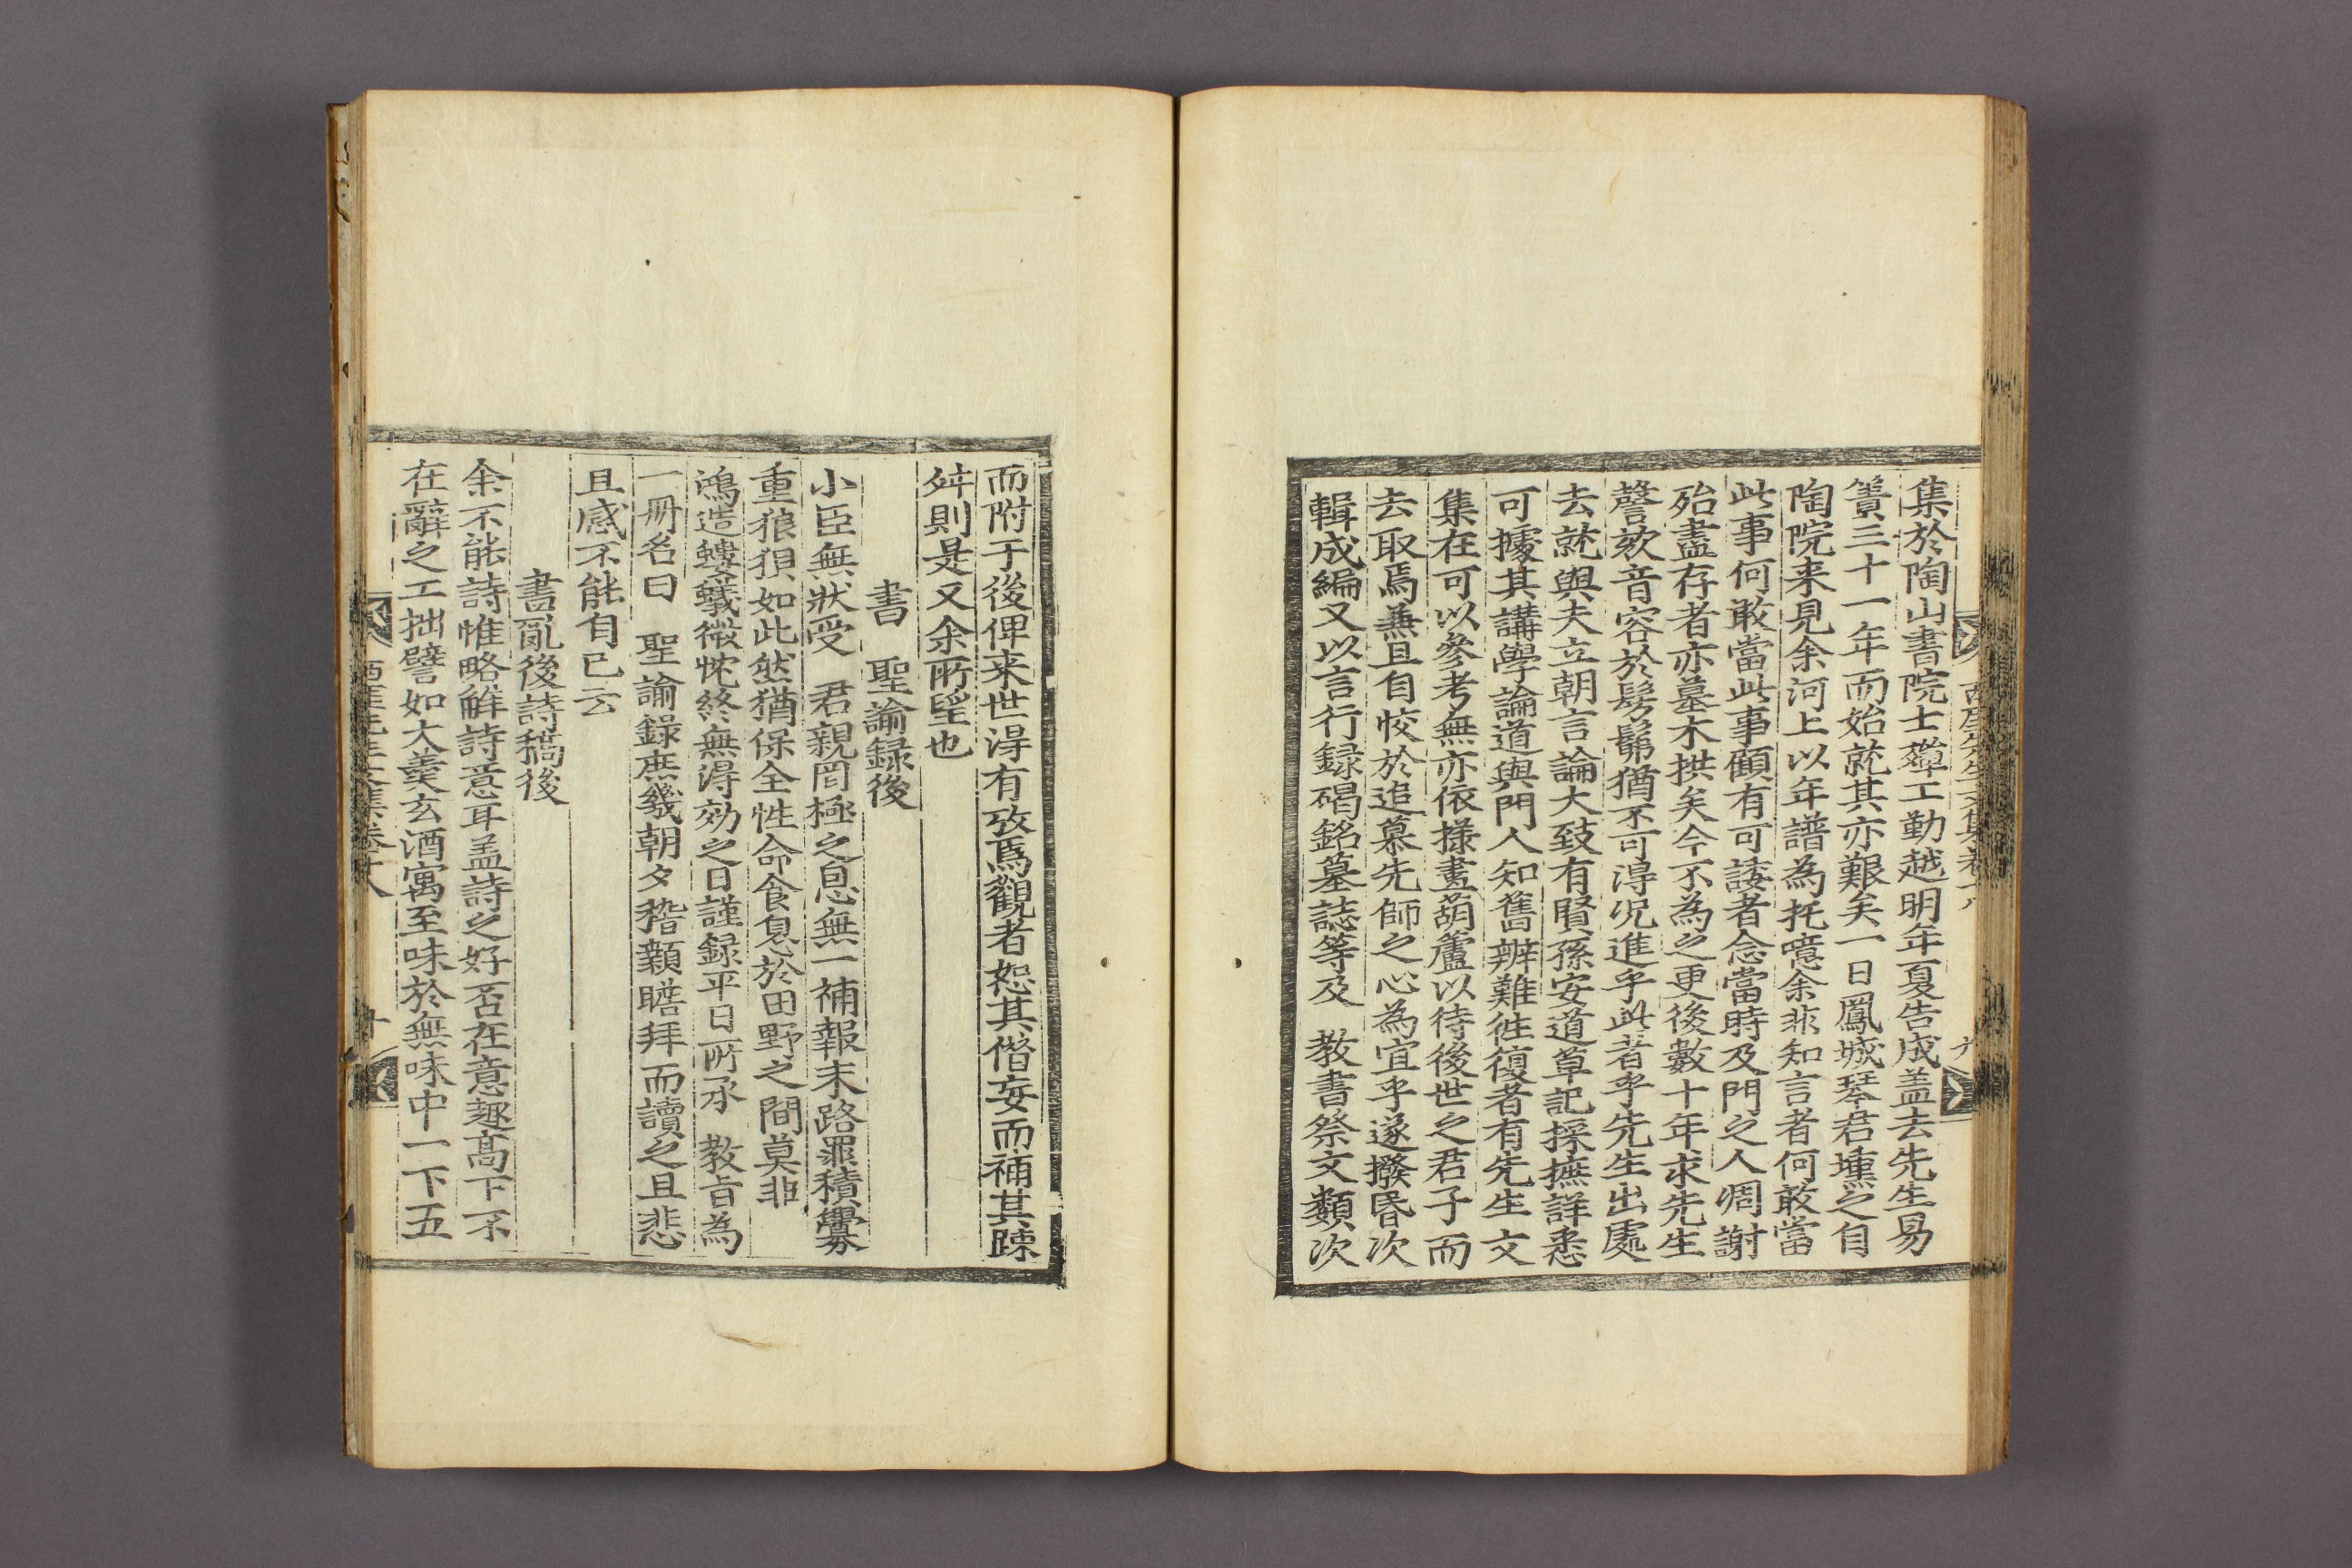 集於陶山書院士彈工勤越明年夏告成盖去先生易
簀三十一年而始就其亦艱矣一日鳳城琴君壎之自
陶院来見余河上以年譜為托噫余非知言者何敢當
此事何敢當此事顧有可諉者念當時及門之人凋謝
殆盡存者亦墓木拱矣今不為之更後數十年求先生
謦欬音容於髣髴猶不可淂况進乎此者乎先生出處
去就與夫立朝言論大致有賢孫安道草記採摭詳悉
可據其講學論道與門人知舊辨難徃復者有先生文
集在可以參考無亦依㨾畫葫蘆以待後世之君子而
去取焉無且自恔於追慕先師之心為宜乎遂撥昏次
輯成編又以言行録碣銘墓誌等及 教書祭文類次
而附于後俾来世淂有攷焉觀者恕其僣妄而補其踈
舛則是又余所望也
書 聖諭録後
小臣無狀受 君親罔極之恩無一補報末路罪積釁
重狼狽如此然猶保全性命食息於田野之間莫非
鴻造螻蟻微忱終無淂効之日謹録平日所承 教旨為
一冊名曰 聖諭錄庶幾朝夕稽顙瞻拜而讀之且悲
且感不能自已云
書亂後詩稿後
余不能詩惟略觧詩意耳盖詩之好否在意趣髙下不
在辭之工拙譬如大羹玄酒寓至味於無味中一下五
西厓先生文集卷十八
十